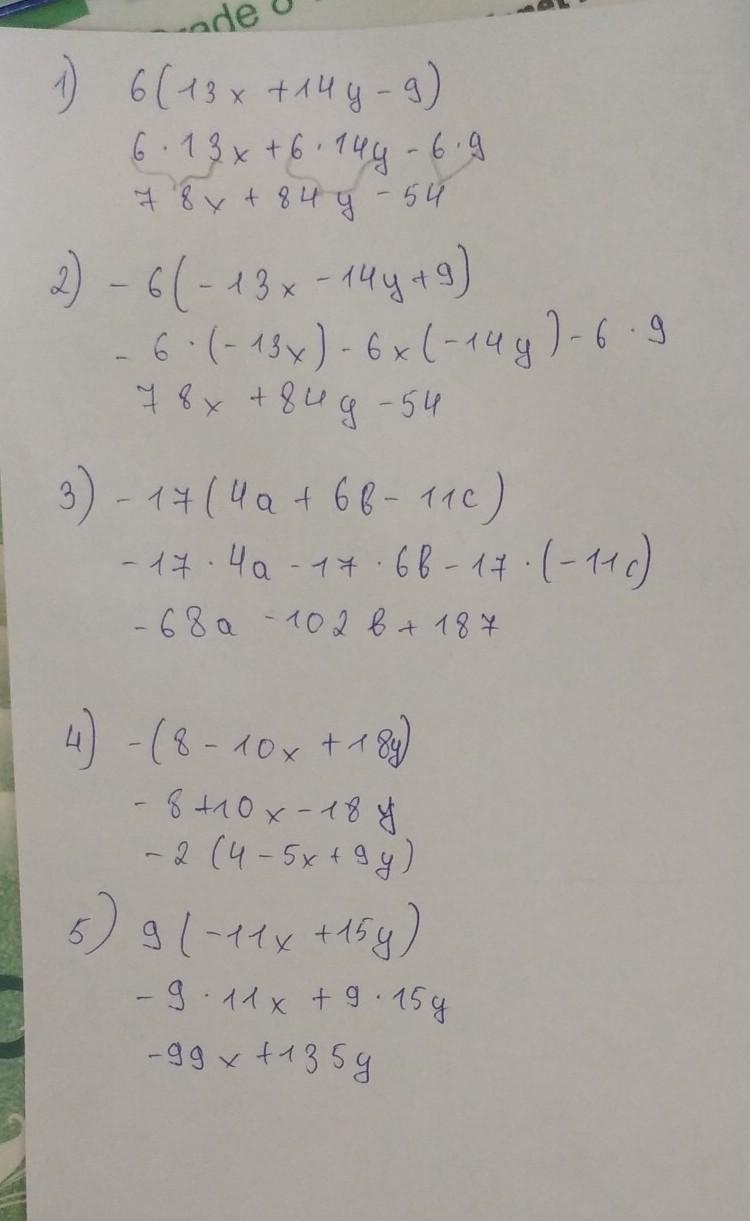 ade
1) 6(13x +14y - 9)
6·13x +6·14y - 6·9
78x + 84y - 54
2) - 6(-13x - 14y+9)
- 6·(-13x) - 6x(-14y) - 6·9
78x +84y - 54
3) - 17(4a + 6b - 11c)
-17·4a - 17·6b - 17·(-11c)
-68a - 102b + 187
4) -(8 - 10x +18y)
- 8+10x - 18y
- 2(4 - 5x+9y)
5) 9(-11x +15y)
- 9·11x + 9·15y
-99x +135y